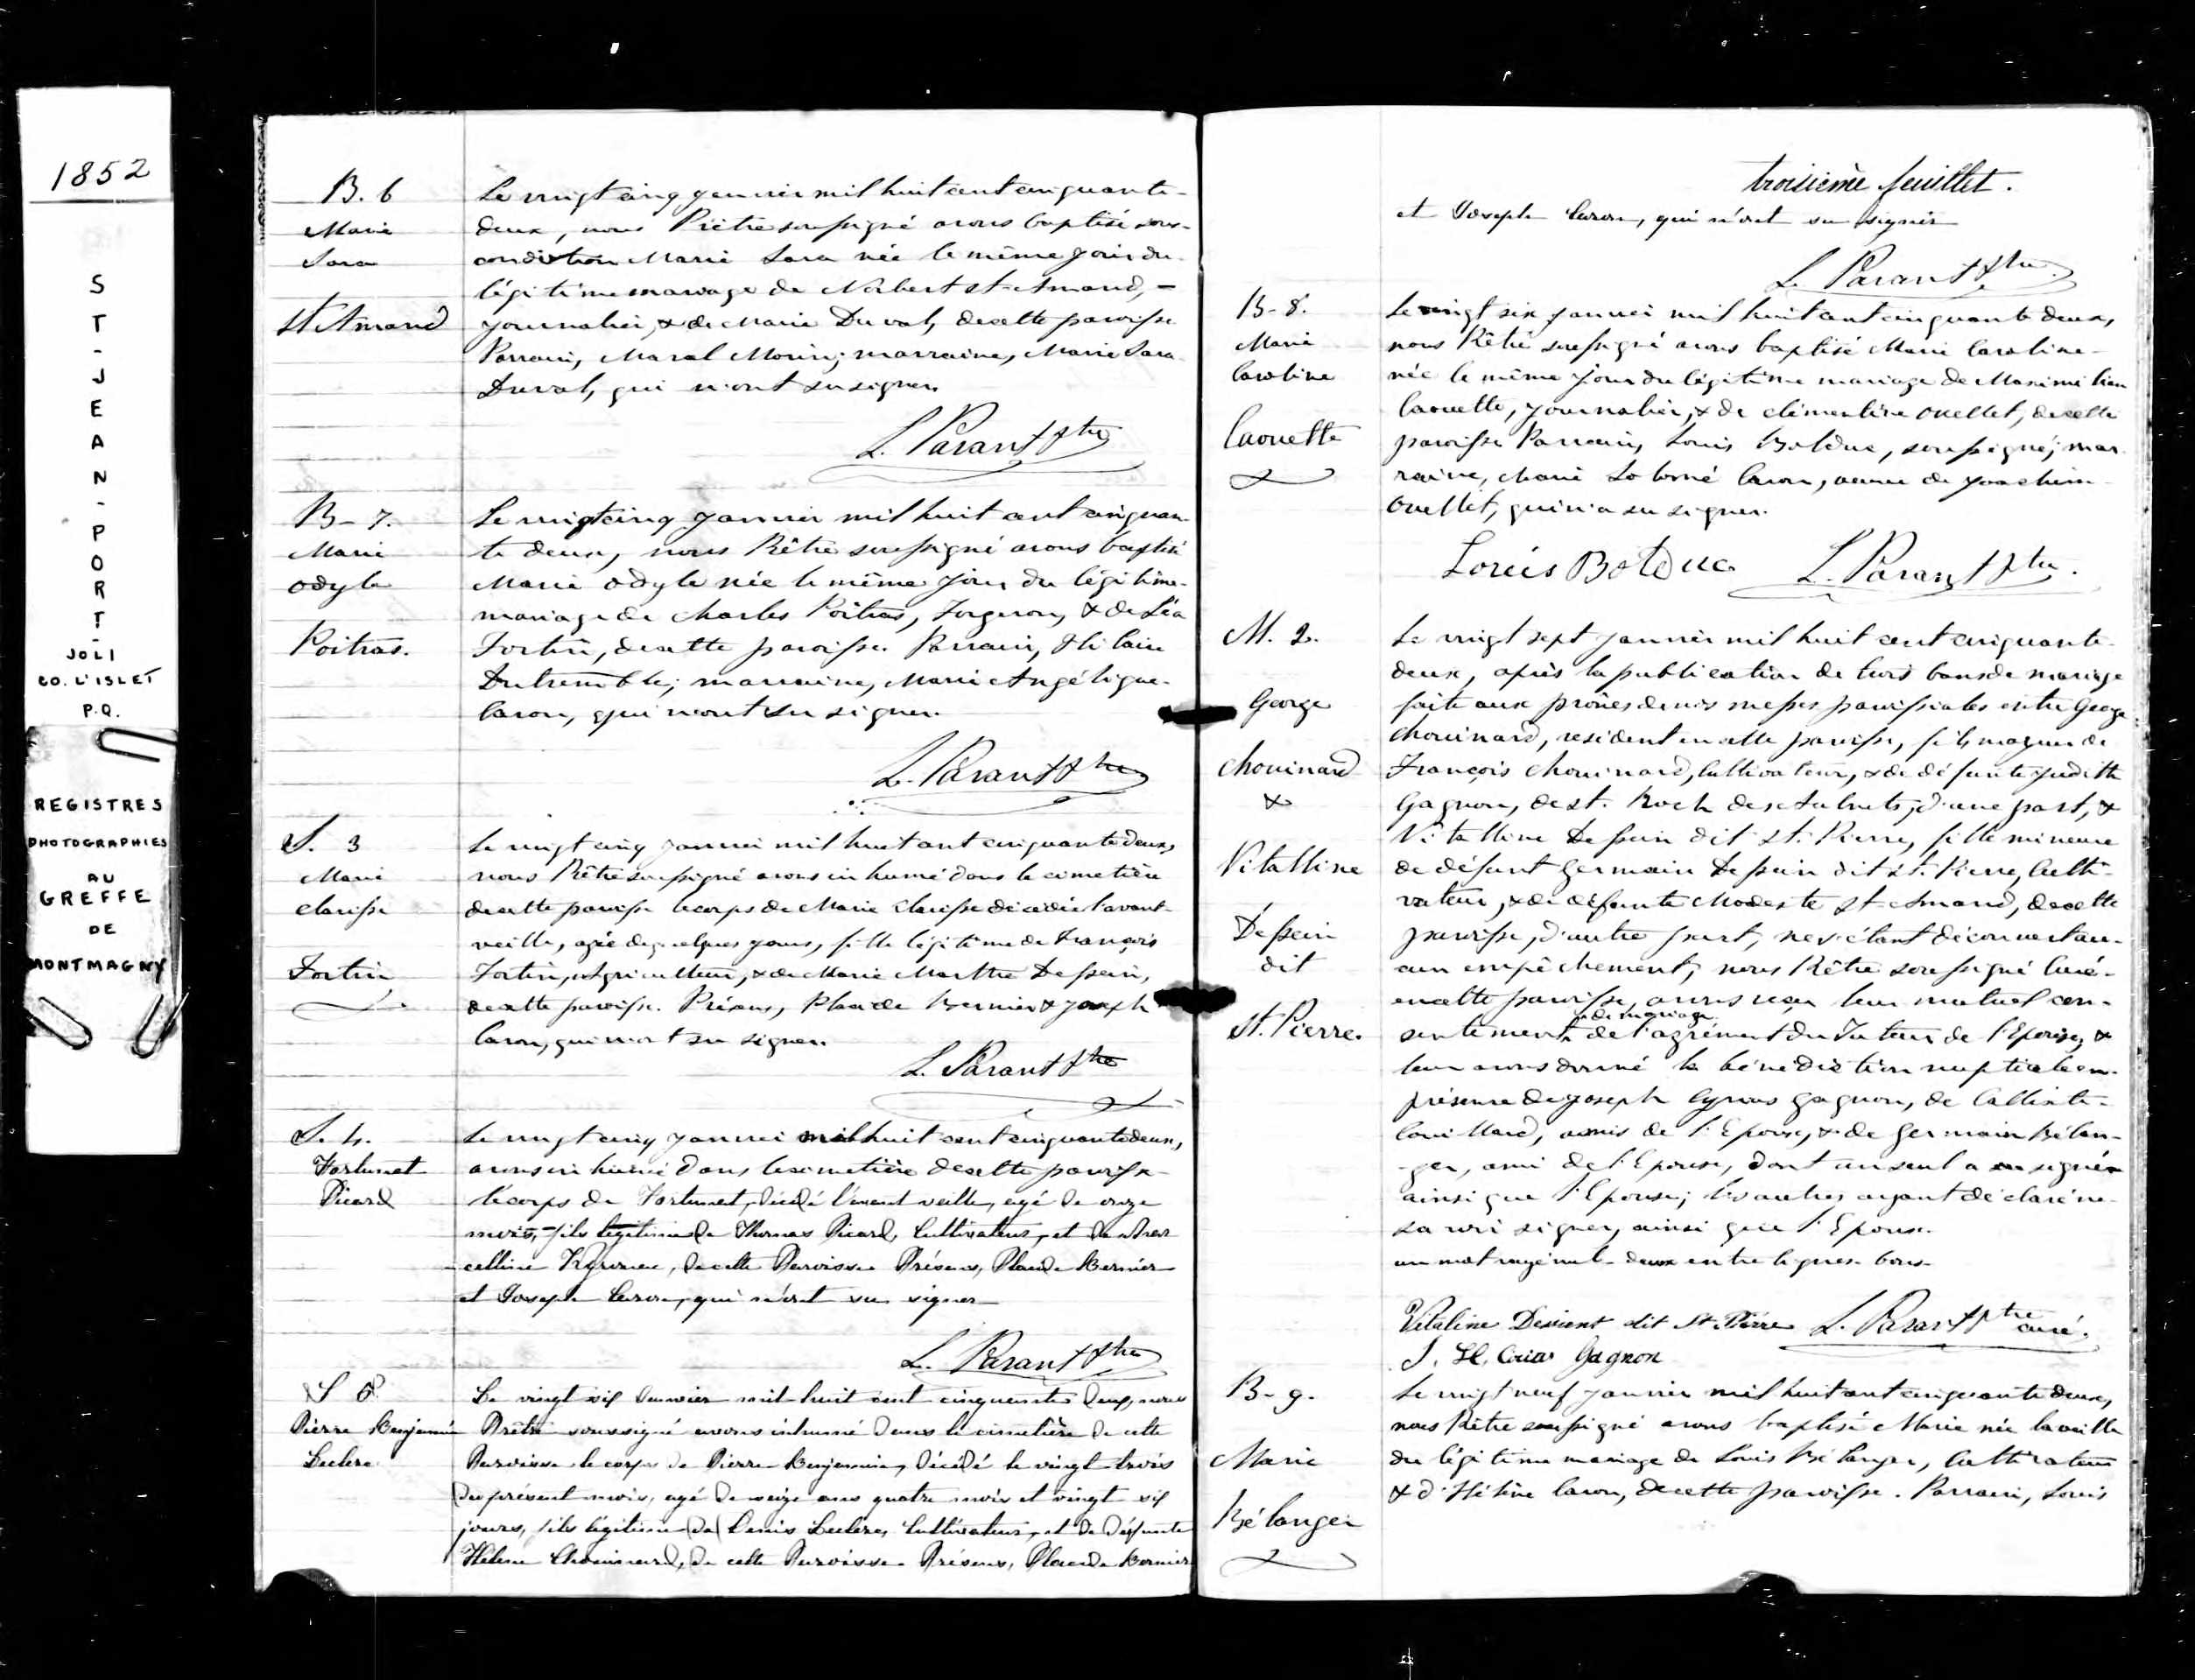 1852
ST-JEAN-PORT-
JOLI
CO. L'ISLET
P.Q.
REGISTRES
PHOTOGRAPHIES
AU
GREFFE
DE
MONTMAGNY
B. 6
Marie
Sara
St Amand
Le vingt cinq janvier mil huit cent cinquante-
deux, nous Prêtre soussigné avons baptisé sous-
condition Marie Sara née le même jour du
légitime mariage de Norbert St-Amand,
journalier, & de Marie Duval, de cette paroisse
Parrain, Maral Morin; marraine, Marie Sara
Duval, qui n'ont su signer.
L. Parant Ptre
B-7.
Marie
Odyle
Poitras.
Le vingt cinq janvier mil huit cent cinquan-
te deux, nous Prêtre soussigné avons baptisé
Marie Odyle née le même jour du légitime
mariage de Charles Poitras, Forgeron, & de Léa
Fortin, de cette paroisse. Parrain, Hilaire
Dutremble; marraine, Marie Angélique
Caron, qui n'ont su signer.
L. Parant Ptre
S. 3
Marie
Clarisse
Fortin
Le vingt cinq janvier mil huit cent cinquante deux,
nous Prêtre soussigné avons inhumé dans le cimetière
de cette paroisse le corps de Marie Clarisse décédée l'avant-
veille, agée de quelques jours, fille légitime de François
Fortin, Agriculteur, & de Marie Marthe Dessein,
de cette paroisse. Présens, Placide Bernier & Joseph
Caron, qui n'ont su signer.
L. Parant Ptre
S. 4.
Fortunat
Picard
Le vingt cinq janvier mil huit cent cinquante deux,
avons inhumé dans le cimetière de cette paroisse
le corps de Fortunat, décédé l'avant veille, agé de onze
mois, fils légitime de Thomas Picard, Cultivateur, et de
celline, de cette Paroisse Présens, Placide Bernier
et Joseph Caron, qui n'ont su signer
L. Parant Ptre
S 5
Pierre Benjamin
Leclerc
Le vingt six Janvier mil huit cent cinquante deux, nous
Prêtre soussigné avons inhumé dans le cimetière de cette
Paroisse le corps de Pierre Benjamin, décédé le vingt trois
du présent mois, agé de seize ans quatre mois et vingt six
jours, fils légitime de Denis Leclerc, Cultivateur, et de défunte
Hélène Chouinard, de cette Paroisse Présens, Placide Bernier
troisième feuillet.
et Joseph Caron, qui n'ont su signer
L. Parant Ptre.
B-8.
Marie
Caroline
Caouette
Le vingt six janvier mil huit cent cinquante deux,
nous Prêtre soussigné avons baptisé Marie Caroline
née le même jour du légitime mariage de Maximilien
Caouette, journalier, & de Clémentine Ouellet, de cette
paroisse Parrain, Louis Bolduc, soussigné; mar-
raine, Marie Salomé Caron, veuve de Joachim
Ouellet, qui n'a su signer.
Louis Bolduc L. Parant Ptre.
M. 2.
George
Chouinard
&
Vitalline
Dessein
dit
St. Pierre.
Le vingt sept janvier mil huit cent cinquante-
deux, après la publication de trois bans de mariage
faite aux prônes de nos messes paroissiales entre George
Chouinard, résident en cette paroisse, fils majeur de
François Chouinard, Cultivateur, & de défunte Judith
Gagnon, de St. Roch des Aulnets, d'une part, &
Vitalline Dessein dit St. Pierre, fille mineure
de défunt Germain Dessein dit St. Pierre, Culti-
vateur, & de défunte Modeste St-Amand, de cette
paroisse, d'autre part, ne s'étant découvert au-
cun empêchement, nous Prêtre soussigné Curé
en cette paroisse, avons reçu leur mutuel con-
de mariage
sentement de l'agrément du Tuteur de l'Epouse, &
leur avons donné la bénédiction nuptiale en
présence de Joseph Cyrias Gagnon, de Callixte
Couillard, amis de l'Epoux, & de Germain Bélan-
-ger, ami de l'Epouse, dont un seul a signé
ainsi que l'Epouse; les autres ayant déclaré ne
savoir signer, ainsi que l'Epoux.
un mot rayé nul - deux entre lignes bons.
Vitaline Dessient dit St. Pierre L. Parant Ptre curé.
Gagnon
B-9.
Marie
Bélanger
Le vingt neuf janvier mil huit cent cinquante deux,
nous Prêtre soussigné avons baptisé Marie née la veille
du légitime mariage de Louis Bélanger, Cultivateur
& d'Hélène Caron, de cette paroisse. Parrain, Louis